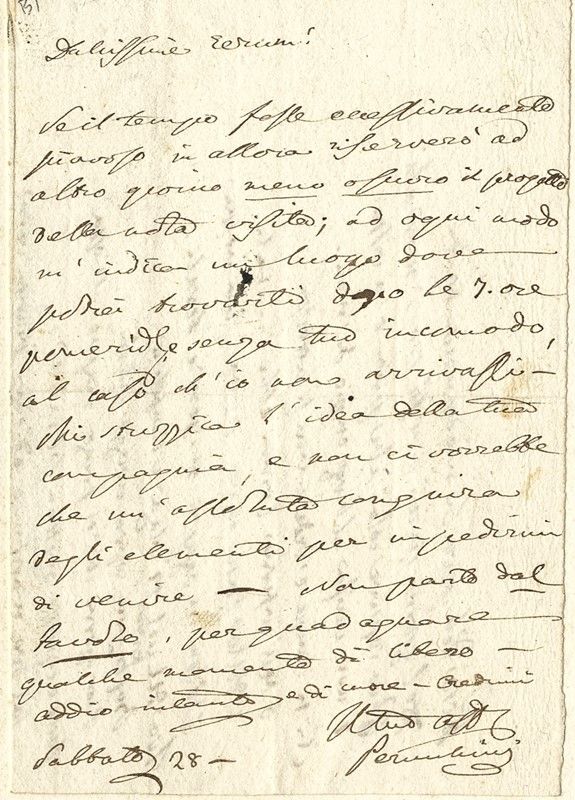 Se il tempo fosse eccessivamente
piovoso in allora riserverò ad
altro giorno meno oscuro il progetto
della nota visita; ad ogni modo
m'indica un luogo dove
potrei trovarti dopo le 7. ore
pomerid.e senza tuo incomodo,
al caso ch'io non arrivassi –
Mi stuzzica l'idea della tua
compagnia, e non ci vorrebbe
che un'assoluta congiura
degli elementi per impedirmi
di venire — Non parto dal
tavolo, per guadagnare
qualche momento di libero –
addio intanto, e di cuore – Credimi
Il tuo aff
Perucchini
Sabbato 28 –